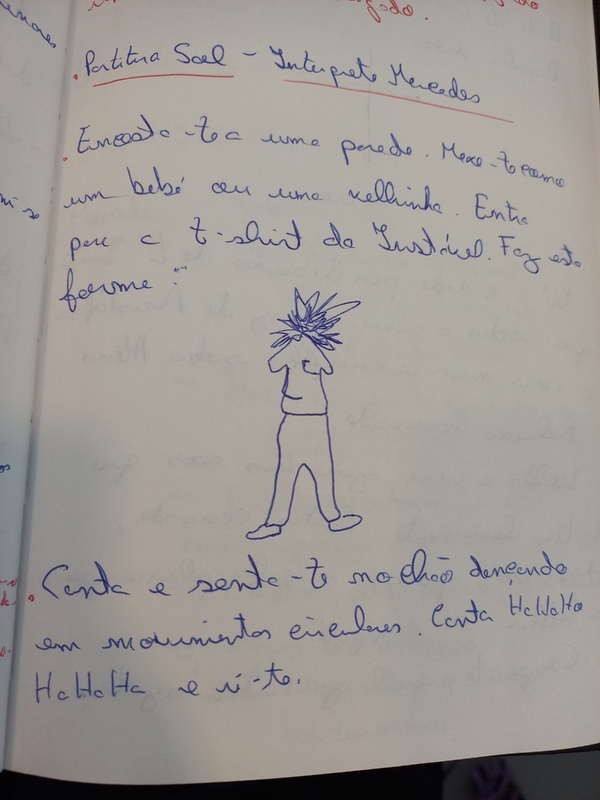 . Partitura Sael - Interprete Mercedes
. Encosta-te a uma parede. Mexe-te como
um bebé ou uma velhinha. Entra
para a t-shirt da Instável. Faz esta
forma:
. Canta e senta-te no chão dançando
em movimentos circulares. Canta HaHaHa
HaHaHa e ri-te.